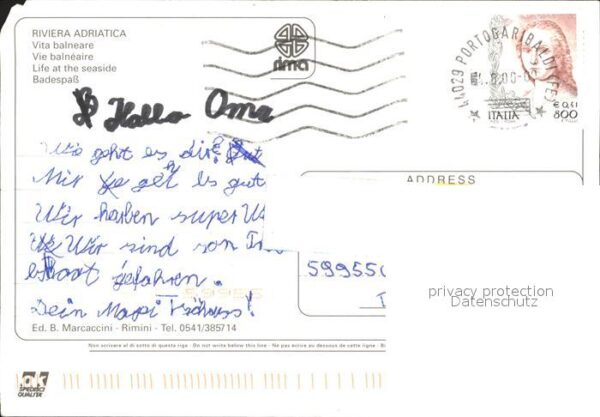 RIVIERA ADRIATICA
Vita balneare
Vie balnéaire
Life at the seaside
Badespaß
dma
44029 PORTOGARIBALDI (FE)
ITALIA
800
Hallo Oma
Wie geht es dir?
Mir geht es gut
Wir haben super
Wir sind von
boot gefahren.
Dein
ADDRESS
59955
privacy protection
Datenschutz
Ed. B. Marcaccini - Rimini - Tel. 0541/385714
Non scrivere al di sotto di questa riga - Do not write below this line - Ne pas écrire au dessous de cette ligne
SPEDISCI
QUALITÀ